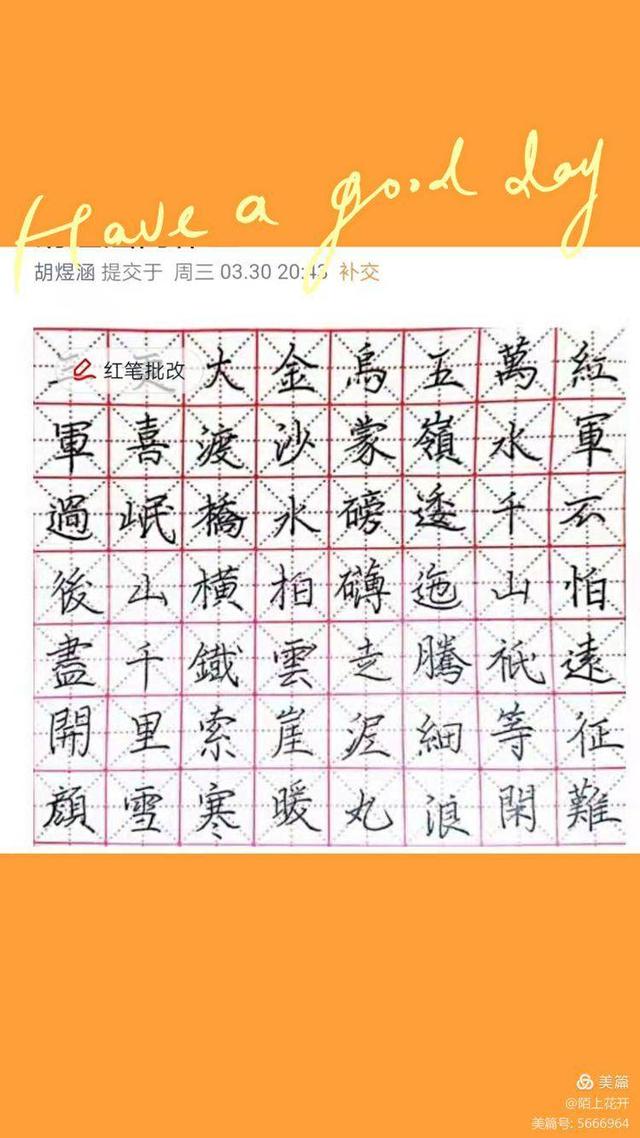 Have a good day
胡煜涵 提交于 周三 03.30 20:43 补交
红笔批改
紅軍不怕遠征難
萬水千山祇等閑
五嶺逶迤騰細浪
烏蒙磅礴走泥丸
金沙水拍雲崖暖
大渡橋橫鐵索寒
喜岷山千里雪
軍過後盡開顔
美篇
@陌上花开
美篇号: 5666964